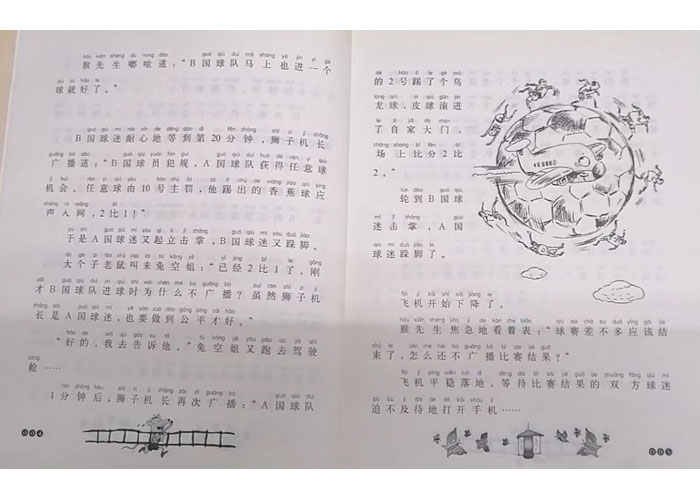 猴先生嘟哝道：“B国球队马上也进一个
球就好了。”
B国球迷耐心地等到第20分钟，狮子机长
广播道：“B国球员犯规，A国球队获得任意球
机会。任意球由10号主罚，他踢出的香蕉球应
声入网，2比1！”
于是A国球迷又起立击掌，B国球迷又跺脚。
大个子老鼠叫来兔空姐：“已经2比1了，刚
才B国球队进球时为什么不广播？虽然狮子机
长是A国球迷，也要做到公平才好。”
“好的，我去告诉他。”兔空姐又跑去驾驶
舱……
1分钟后，狮子机长再次广播：“A国球队
004
的2号踢了个乌
龙球，皮球滴进
了自家大门，
场上比分2比
2。”
轮到B国球
迷击掌，A国
球迷跺脚了。
飞机开始下降了。
猴先生焦急地看着表：“球赛差不多应该结
束了，怎么还不广播比赛结果？”
飞机平稳落地，等待比赛结果的双方球迷
迫不及待地打开手机……
005